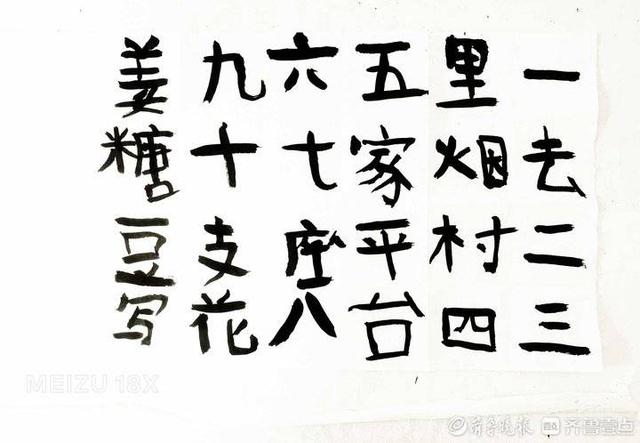 一去二三
里烟村四
五家平台
六七座八
九十支花
姜糖豆写
MEIZU 18X
齐鲁晚报 齐鲁壹点